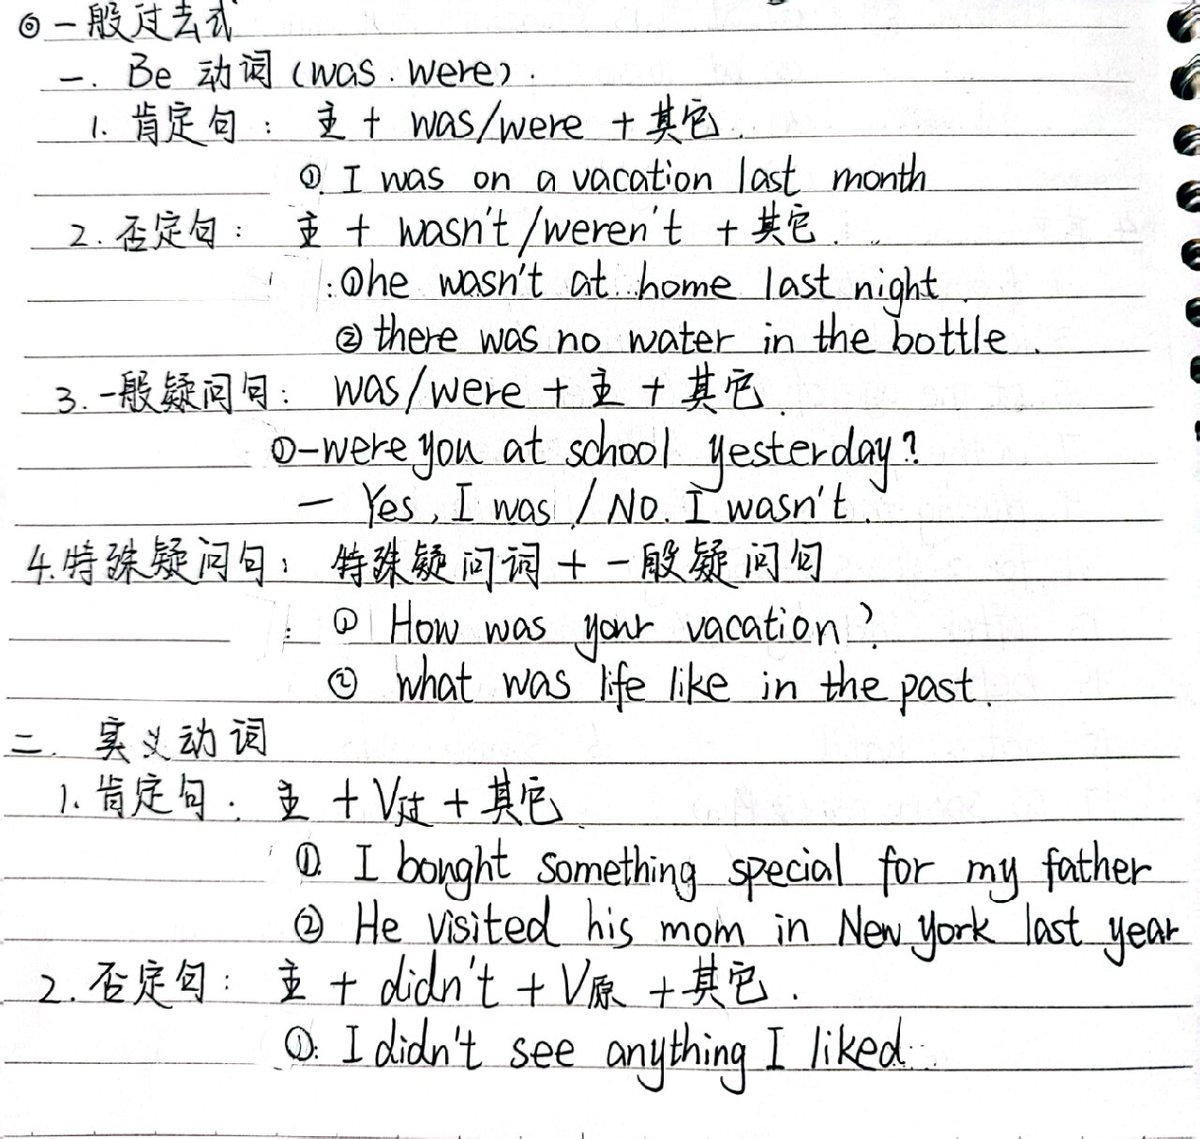 ◎一般过去式
一. Be 动词 (was. were).
1. 肯定句: 主 + was/were + 其它.
①. I was on a vacation last month
2. 否定句: 主 + wasn't /weren't + 其它.
:①he wasn't at home last night.
② there was no water in the bottle.
3. 一般疑问句: was/were + 主 + 其它.
①-were you at school yesterday?
— Yes, I was / No. I wasn't.
4.特殊疑问句: 特殊疑问词 + 一般疑问句
: ① How was your vacation?
② what was life like in the past.
二. 实义动词
1. 肯定句. 主 + V过 + 其它.
①. I bought something special for my father
② He visited his mom in New york last year
2. 否定句: 主 + didn't + V原 + 其它.
①: I didn't see anything I liked.